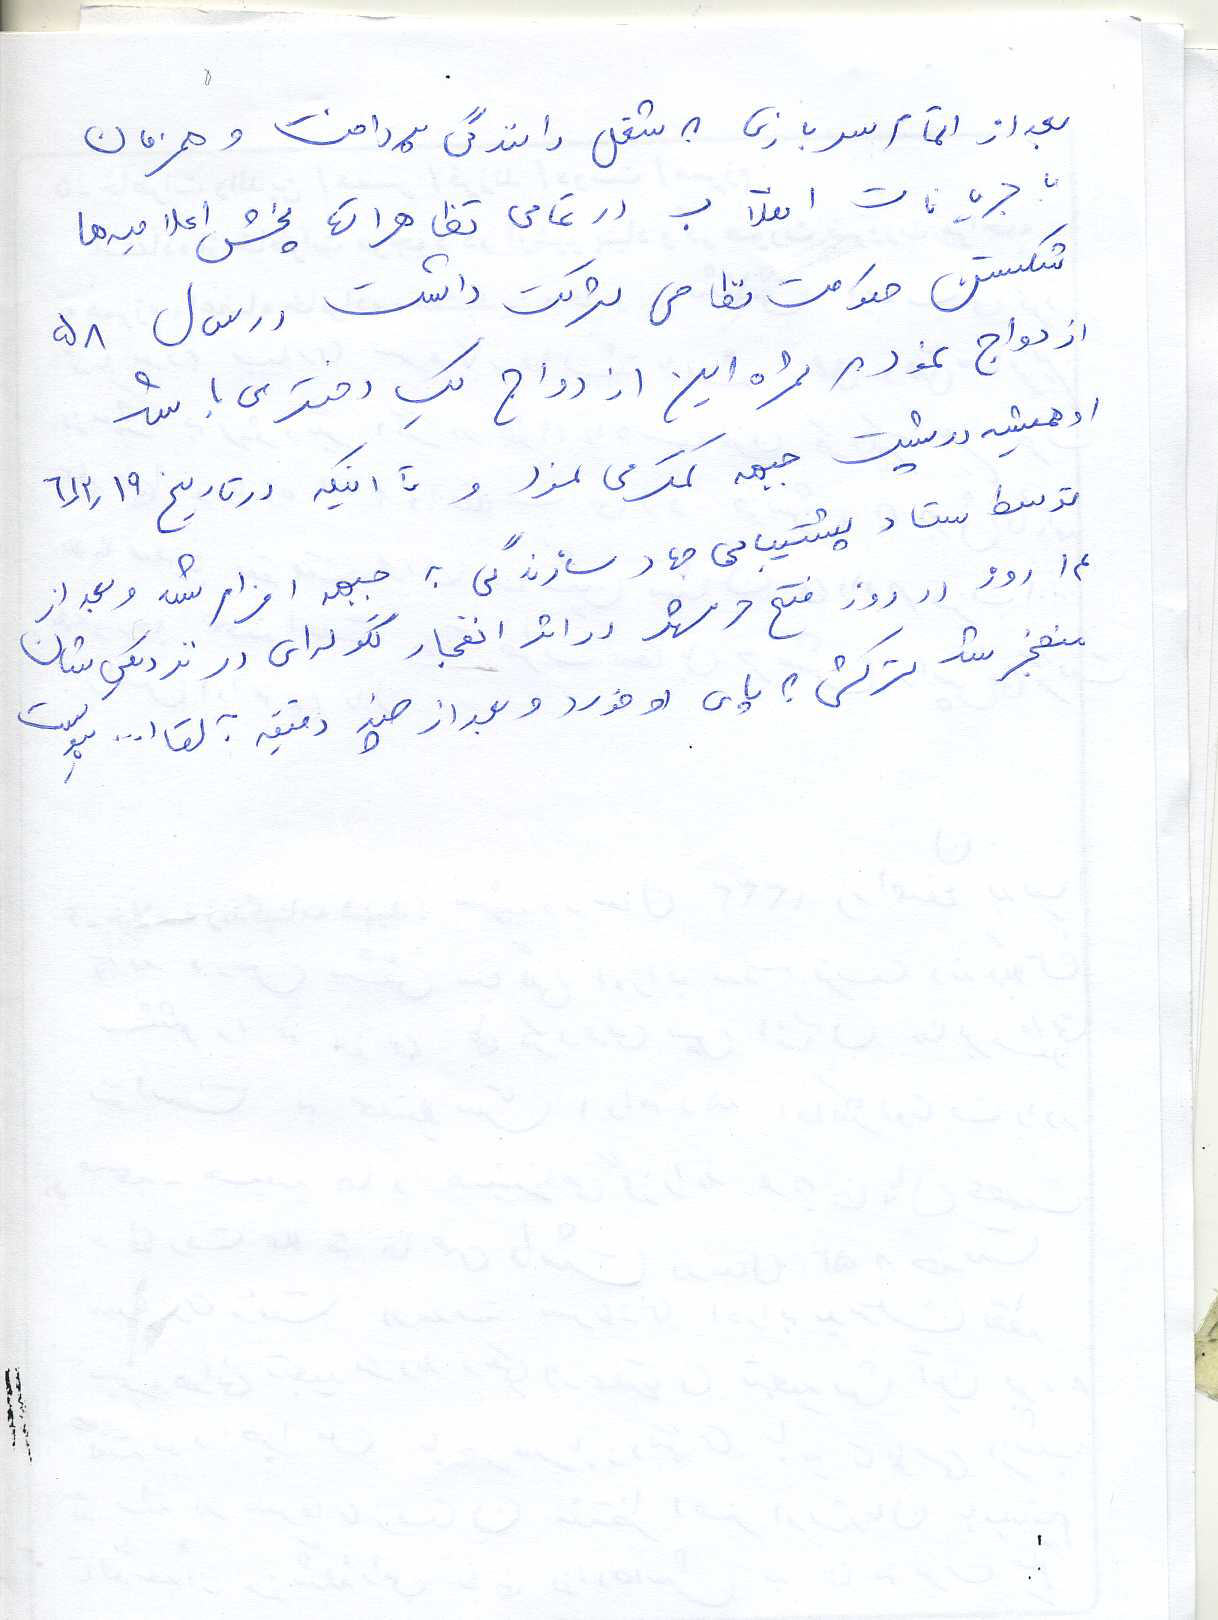 بعد از اتمام سربازی به شغل رانندگی پرداخت و همزمان
با جریانات انقلاب در تمامی تظاهراتها پخش اعلامیه‌ها
شکستن حکومت نظامی شرکت داشت در سال ۵۸
ازدواج نمود ثمره این ازدواج یک دختر می باشد
او همیشه در پشت جبهه کمک می نمود و تا اینکه در تاریخ
توسط ستاد پشتیبانی جهاد سازندگی به جبهه اعزام شد و بعد از
۱۴ روز در روز فتح خرمشهر در اثر انفجار گلوله‌ای در نزدیکی شان
منفجر شد ترکشی به پای او خورد و بعد از چند دقیقه به لقاا... پیوست